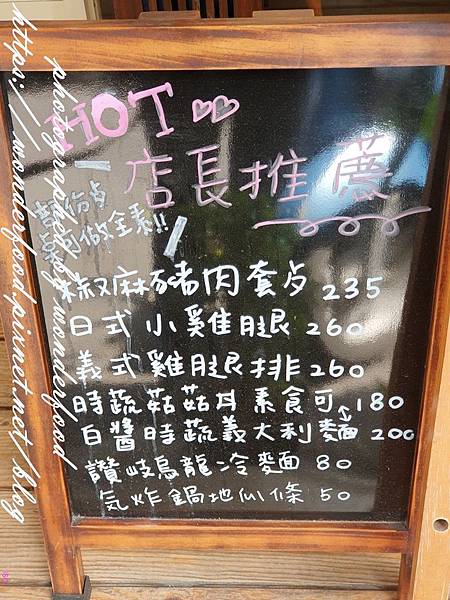 HOT
店長推薦
可做全素!!
椒麻豬肉套歺 235
日式小雞腿 260
義式雞腿排 260
時蔬菇菇丼 素食可 180
白醬時蔬義大利麵 200
讚岐烏龍冷麵 80
気炸鍋地瓜條 50
photographed by wonderfood
https://wonderfood.pixnet.net/blog